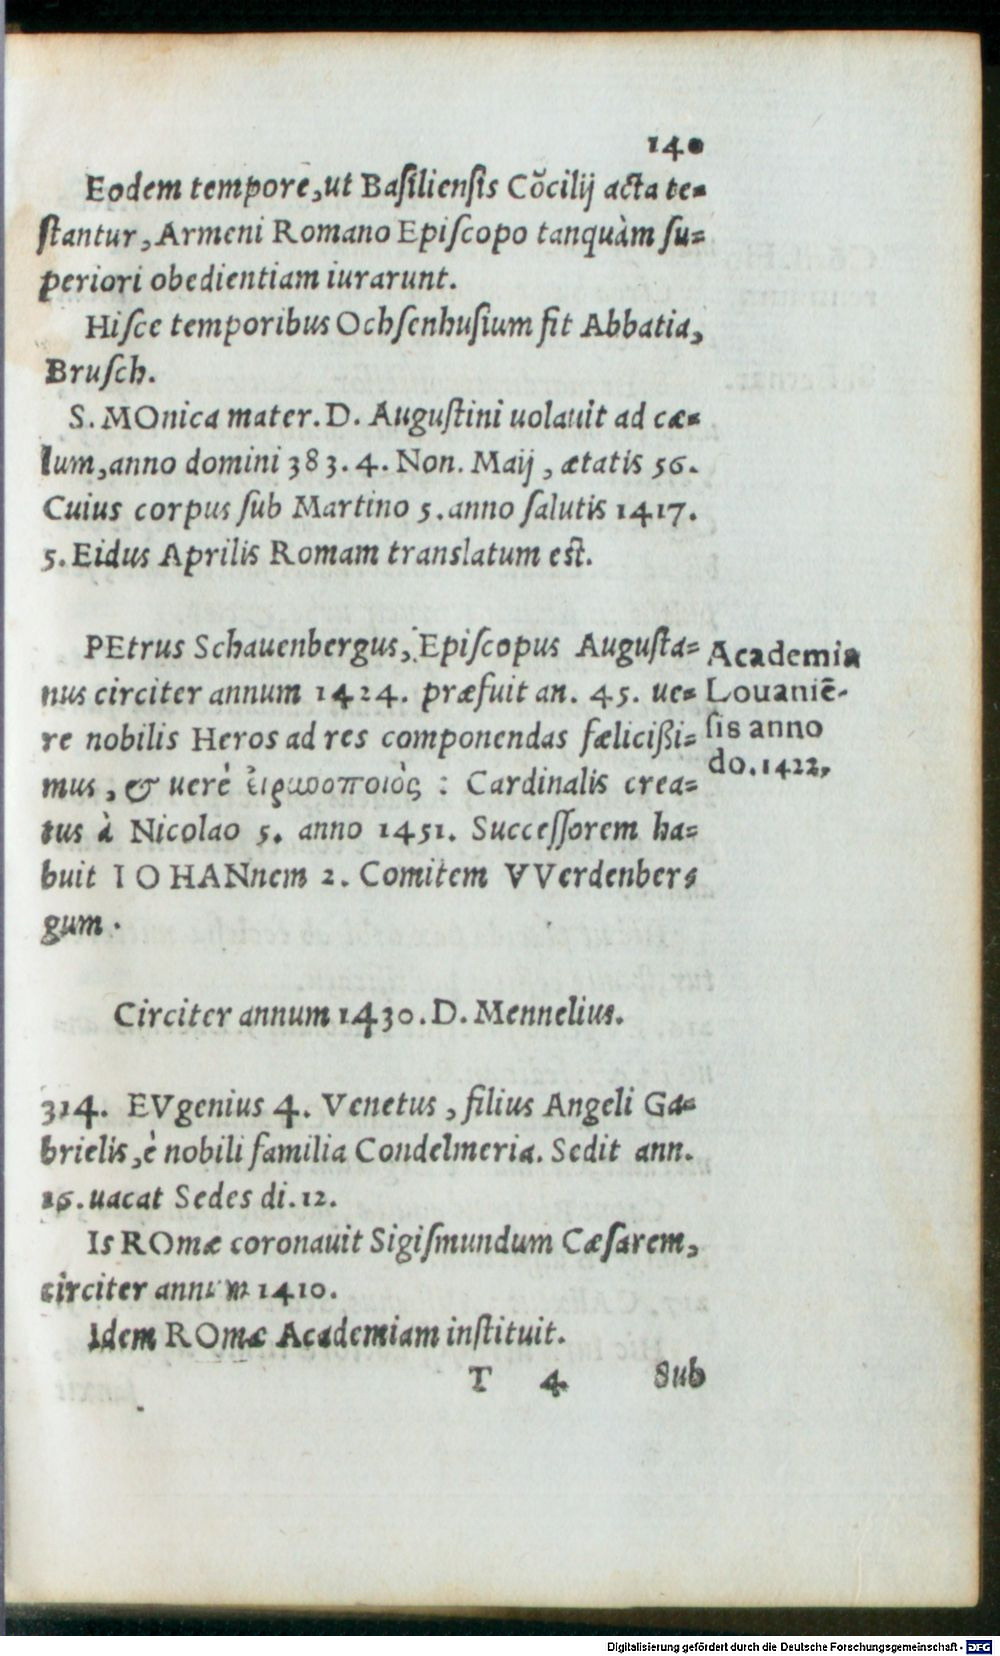 140
Eodem tempore, ut Basiliensis Cōcilij acta te=
stantur, Armeni Romano Episcopo tanquàm su=
periori obedientiam iurarunt.
Hisce temporibus Ochsenhusium fit Abbatia,
Brusch.
S. MOnica mater. D. Augustini uolauit ad cæ=
lum, anno domini 383. 4. Non. Maij, ætatis 56.
Cuius corpus sub Martino 5. anno salutis 1417.
5. Eidus Aprilis Romam translatum est.
PEtrus Schauenbergus, Episcopus Augusta=
nus circiter annum 1424. præfuit an. 45. ue=
re nobilis Heros ad res componendas fælicißi=
mus, & uerè εἰρωνοποιὸς : Cardinalis crea=
tus à Nicolao 5. anno 1451. Successorem ha=
buit IOHANnem 2. Comitem VVerdenber=
gum.
Academia
Louaniē-
sis anno
do. 1422,
Circiter annum 1430. D. Mennelius.
314. EVgenius 4. Venetus, filius Angeli Ga=
brielis, è nobili familia Condelmeria. Sedit ann.
16. uacat Sedes di. 12.
Is ROmæ coronauit Sigismundum Cæsarem,
circiter annum 1410.
Idem ROmæ Academiam instituit.
T 4 Sub
Digitalisierung gefördert durch die Deutsche Forschungsgemeinschaft - DFG